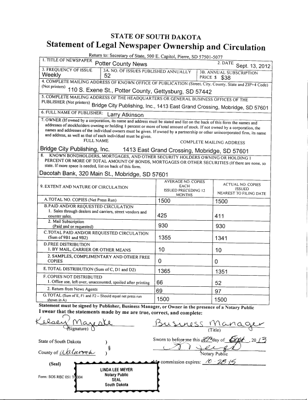 STATE OF SOUTH DAKOTA
Statement of Legal Newspaper Ownership and Circulation
Return to: Secretary of State, 500 E. Capitol, Pierre, SD 57501-5077
1. TITLE OF NEWSPAPER Potter County News 2. DATE Sept. 13, 2012
3. FREQUENCY OF ISSUE Weekly 3A. NO. OF ISSUES PUBLISHED ANNUALLY 52 3B. ANNUAL SUBSCRIPTION PRICE $ $38
4. COMPLETE MAILING ADDRESS OF KNOWN OFFICE OF PUBLICATION (Street, City, County, State and ZIP+4 Code) (Not printers)
110 S. Exene St., Potter County, Gettysburg, SD 57442
5. COMPLETE MAILING ADDRESS OF THE HEADQUARTERS OR GENERAL BUSINESS OFFICES OF THE PUBLISHER (Not printers)
Bridge City Publishing, Inc., 1413 East Grand Crossing, Mobridge, SD 57601
6. FULL NAME OF PUBLISHER: Larry Atkinson
7. OWNER (If owned by a corporation, its name and address must be stated and list on the back of this form the names and
addresses of stockholders owning or holding 1 percent or more of total amount of stock. If not owned by a corporation, the
names and addresses of the individual owners must be given. If owned by a partnership or other unincorporated firm, its name
and address, as well as that of each individual must be given.
FULL NAME COMPLETE MAILING ADDRESS
Bridge City Publishing, Inc. 1413 East Grand Crossing, Mobridge, SD 57601
8. KNOWN BONDHOLDERS, MORTGAGEES, AND OTHER SECURITY HOLDERS OWNING OR HOLDING 1
PERCENT OR MORE OF TOTAL AMOUNT OF BONDS, MORTGAGES OR OTHER SECURITIES (If there are none, so
state. If more space is needed, list on back of this form.
Dacotah Bank, 320 Main St., Mobridge, SD 57601
9. EXTENT AND NATURE OF CIRCULATION
AVERAGE NO. COPIES EACH ISSUED PRECEDING 12 MONTHS
ACTUAL NO. COPIES ISSUED NEAREST TO FILING DATE
A.TOTAL NO. COPIES (Net Press Run) 1500 1500
B.PAID AND/OR REQUESTED CIRCULATION
1. Sales through dealers and carriers, street vendors and counter sales. 425 411
2. Mail Subscription (Paid and or requested) 930 930
C.TOTAL PAID AND/OR REQUESTED CIRCULATION (Sum of 9B1 and 9B2) 1355 1341
D.FREE DISTRIBUTION
1. BY MAIL, CARRIER OR OTHER MEANS 10 10
2. SAMPLES, COMPLIMENTARY AND OTHER FREE COPIES 0 0
E. TOTAL DISTRIBUTION (Sum of C, D1 and D2) 1365 1351
F. COPIES NOT DISTRIBUTED
1. Office use, left over, unaccounted, spoiled after printing 66 52
2. Return from News Agents 69 97
G. TOTAL (Sum of E, F1 and F2 – Should equal net press run shown in A) 1500 1500
Statement must be signed by Publisher, Business Manager, or Owner in the presence of a Notary Public
I swear that the statements made by me are true, correct, and complete:
Business Manager
(Signature) (Title)
State of South Dakota )
Sworn to before me this day of Sept
County of )
Notary Public
(Seal) commission expires:
LINDA LEE MEYER
Notary Public
SEAL
South Dakota